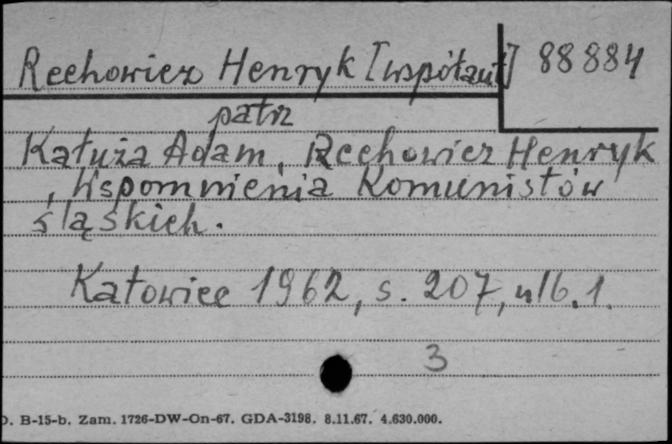 Rechowicz Henryk [współaut] 88884
patrz
Kałuża Adam, Rechowicz Henryk
, Wspomnienia Komunistów
śląskich.
Katowice 1962, s. 207, nlb. 1.
3
D. B-15-b. Zam. 1726-DW-On-67. GDA-3198. 8.11.67. 4.630.000.